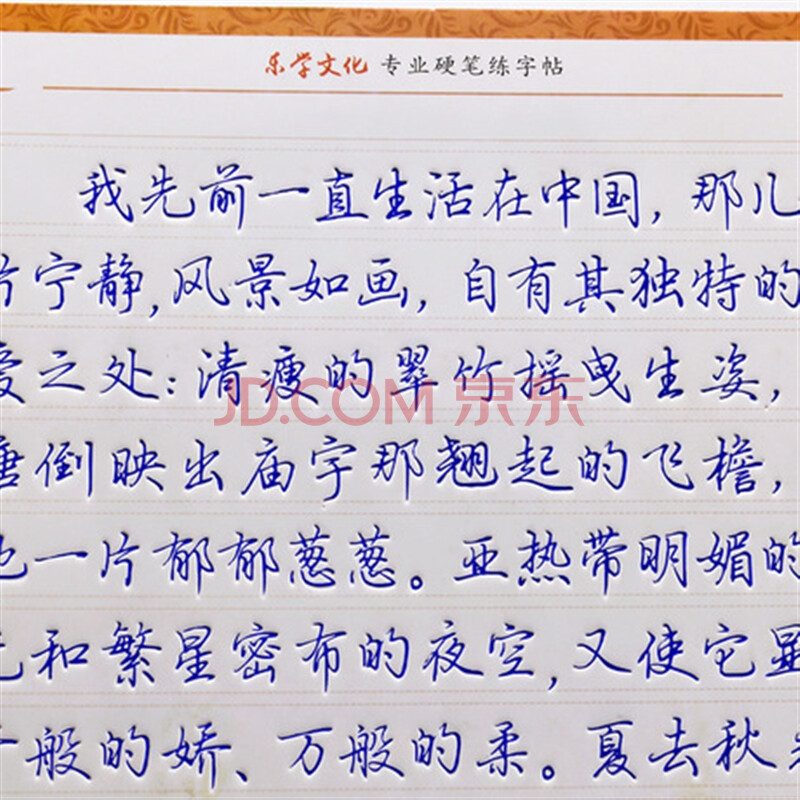 乐学文化 专业硬笔练字帖
我先前一直生活在中国,那儿
宁静,风景如画,自有其独特的
爱之处:清瘦的翠竹摇曳生姿,
JD.COM 京东
塘倒映出庙宇那翘起的飞檐,
也一片郁郁葱葱。亚热带明媚的
光和繁星密布的夜空,又使它显
般的娇、万般的柔。夏去秋来